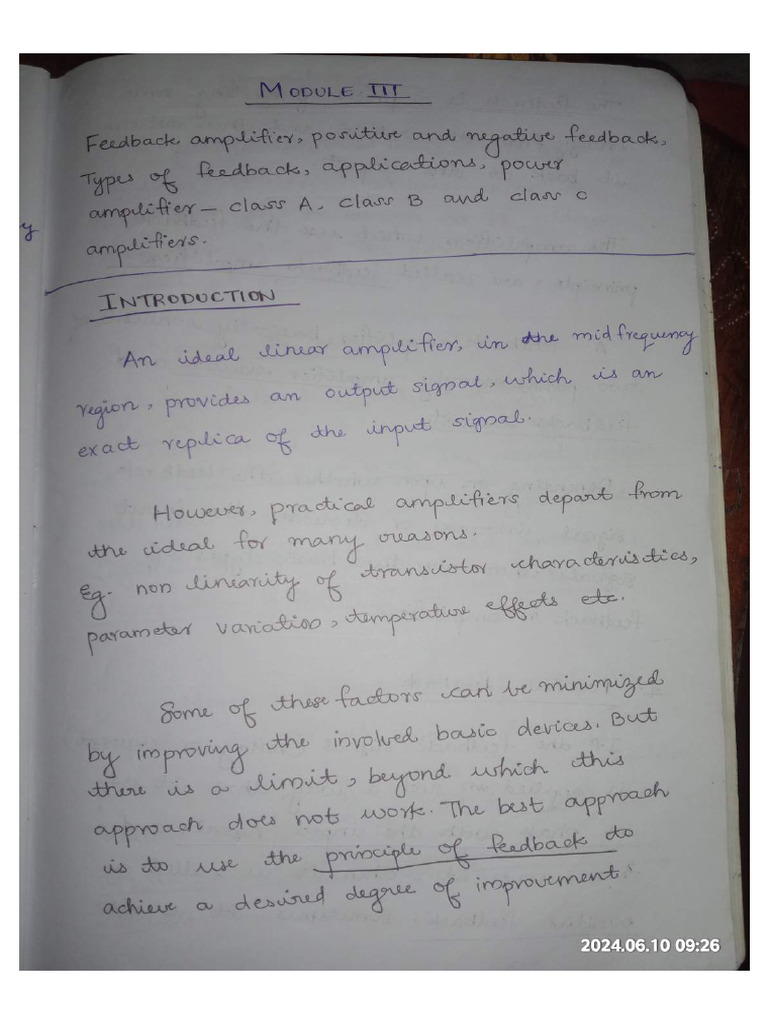 MODULE III
Feedback amplifier, positive and negative feedback,
Types of feedback, applications, power
amplifier - class A, class B and class C
amplifiers.
y
INTRODUCTION
An ideal linear amplifier, in the mid frequency
region, provides an output signal, which is an
exact replica of the input signal.
However, practical amplifiers depart from
the ideal for many reasons.
Eg. non linearity of transistor characteristics,
parameter variation, temperature effects etc.
Some of these factors can be minimized
by improving the involved basic devices. But
there is a limit, beyond which this
approach does not work. The best approach
is to use the principle of feedback to
achieve a desired degree of improvement.
2024.06.10 09:26